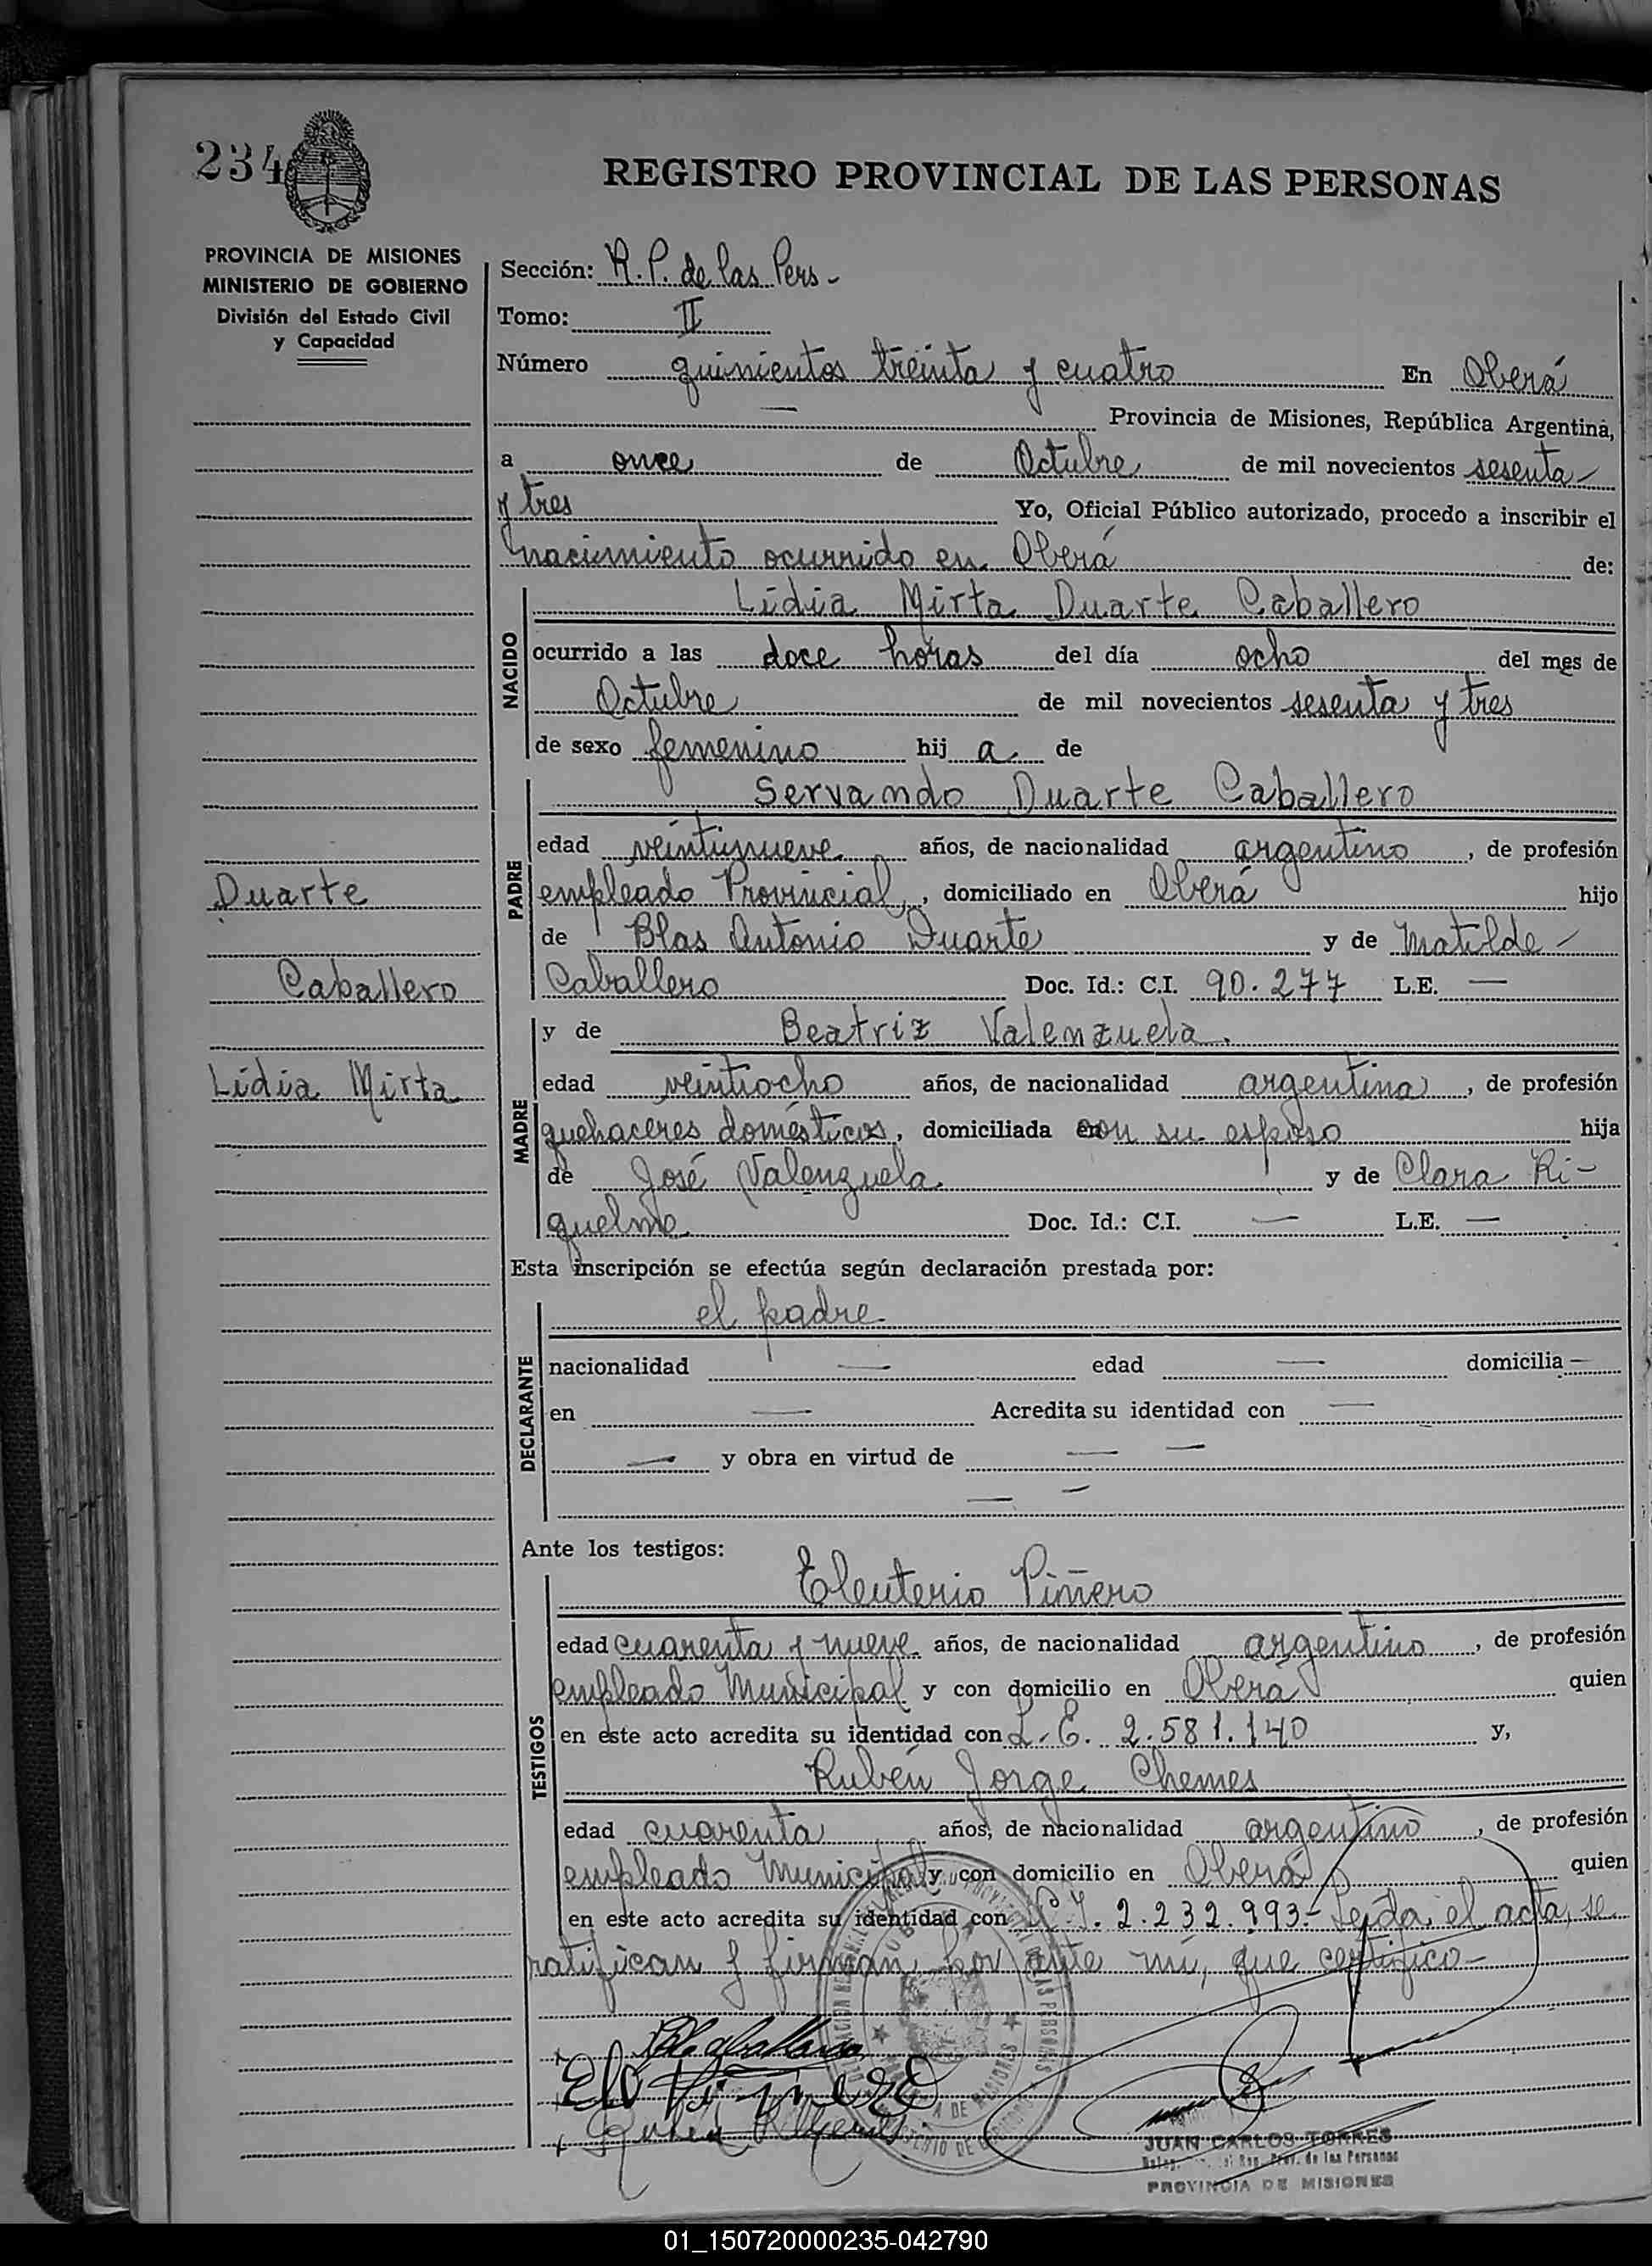 234
REGISTRO PROVINCIAL DE LAS PERSONAS
PROVINCIA DE MISIONES
MINISTERIO DE GOBIERNO
División del Estado Civil
y Capacidad
Sección: R. P. de las Pers -
Tomo: II
Número quinientos treinta y cuatro En Oberá
— Provincia de Misiones, República Argentina,
a once de Octubre de mil novecientos sesenta
y tres Yo, Oficial Público autorizado, procedo a inscribir el
nacimiento ocurrido en Oberá de:
NACIDO
Lidia Mirta Duarte Caballero
ocurrido a las doce horas del día ocho del mes de
Octubre de mil novecientos sesenta y tres
de sexo femenino hij a de
PADRE
Servando Duarte Caballero
edad veintinueve años, de nacionalidad argentino, de profesión
empleado Provincial, domiciliado en Oberá hijo
de Blas Antonio Duarte y de Matilde -
Caballero Doc. Id.: C.I. 90.277 L.E. —
Duarte
Caballero
Lidia Mirta
MADRE
y de Beatriz Valenzuela.
edad veintiocho años, de nacionalidad argentina, de profesión
quehaceres domésticos, domiciliada con su esposo hija
de José Valenzuela y de Clara Ri-
quelme Doc. Id.: C.I. — L.E. —
Esta inscripción se efectúa según declaración prestada por:
DECLARANTE
el padre
nacionalidad — edad — domicilia —
en — Acredita su identidad con —
— y obra en virtud de — —
— —
Ante los testigos:
TESTIGOS
Eleuterio Piñero
edad cuarenta y nueve años, de nacionalidad argentino, de profesión
empleado Municipal y con domicilio en Oberá quien
en este acto acredita su identidad con L. E. 2.581.140 y,
Rubén Jorge Chemes
edad cuarenta años, de nacionalidad argentino, de profesión
empleado Municipal y con domicilio en Oberá quien
en este acto acredita su identidad con C.I. 2.232.993.- Leída el acta, se
ratifican y firman por ante mí, que certifico -
JUAN CARLOS TORRES
Prov. de las Personas
PROVINCIA DE MISIONES
01_150720000235-042790